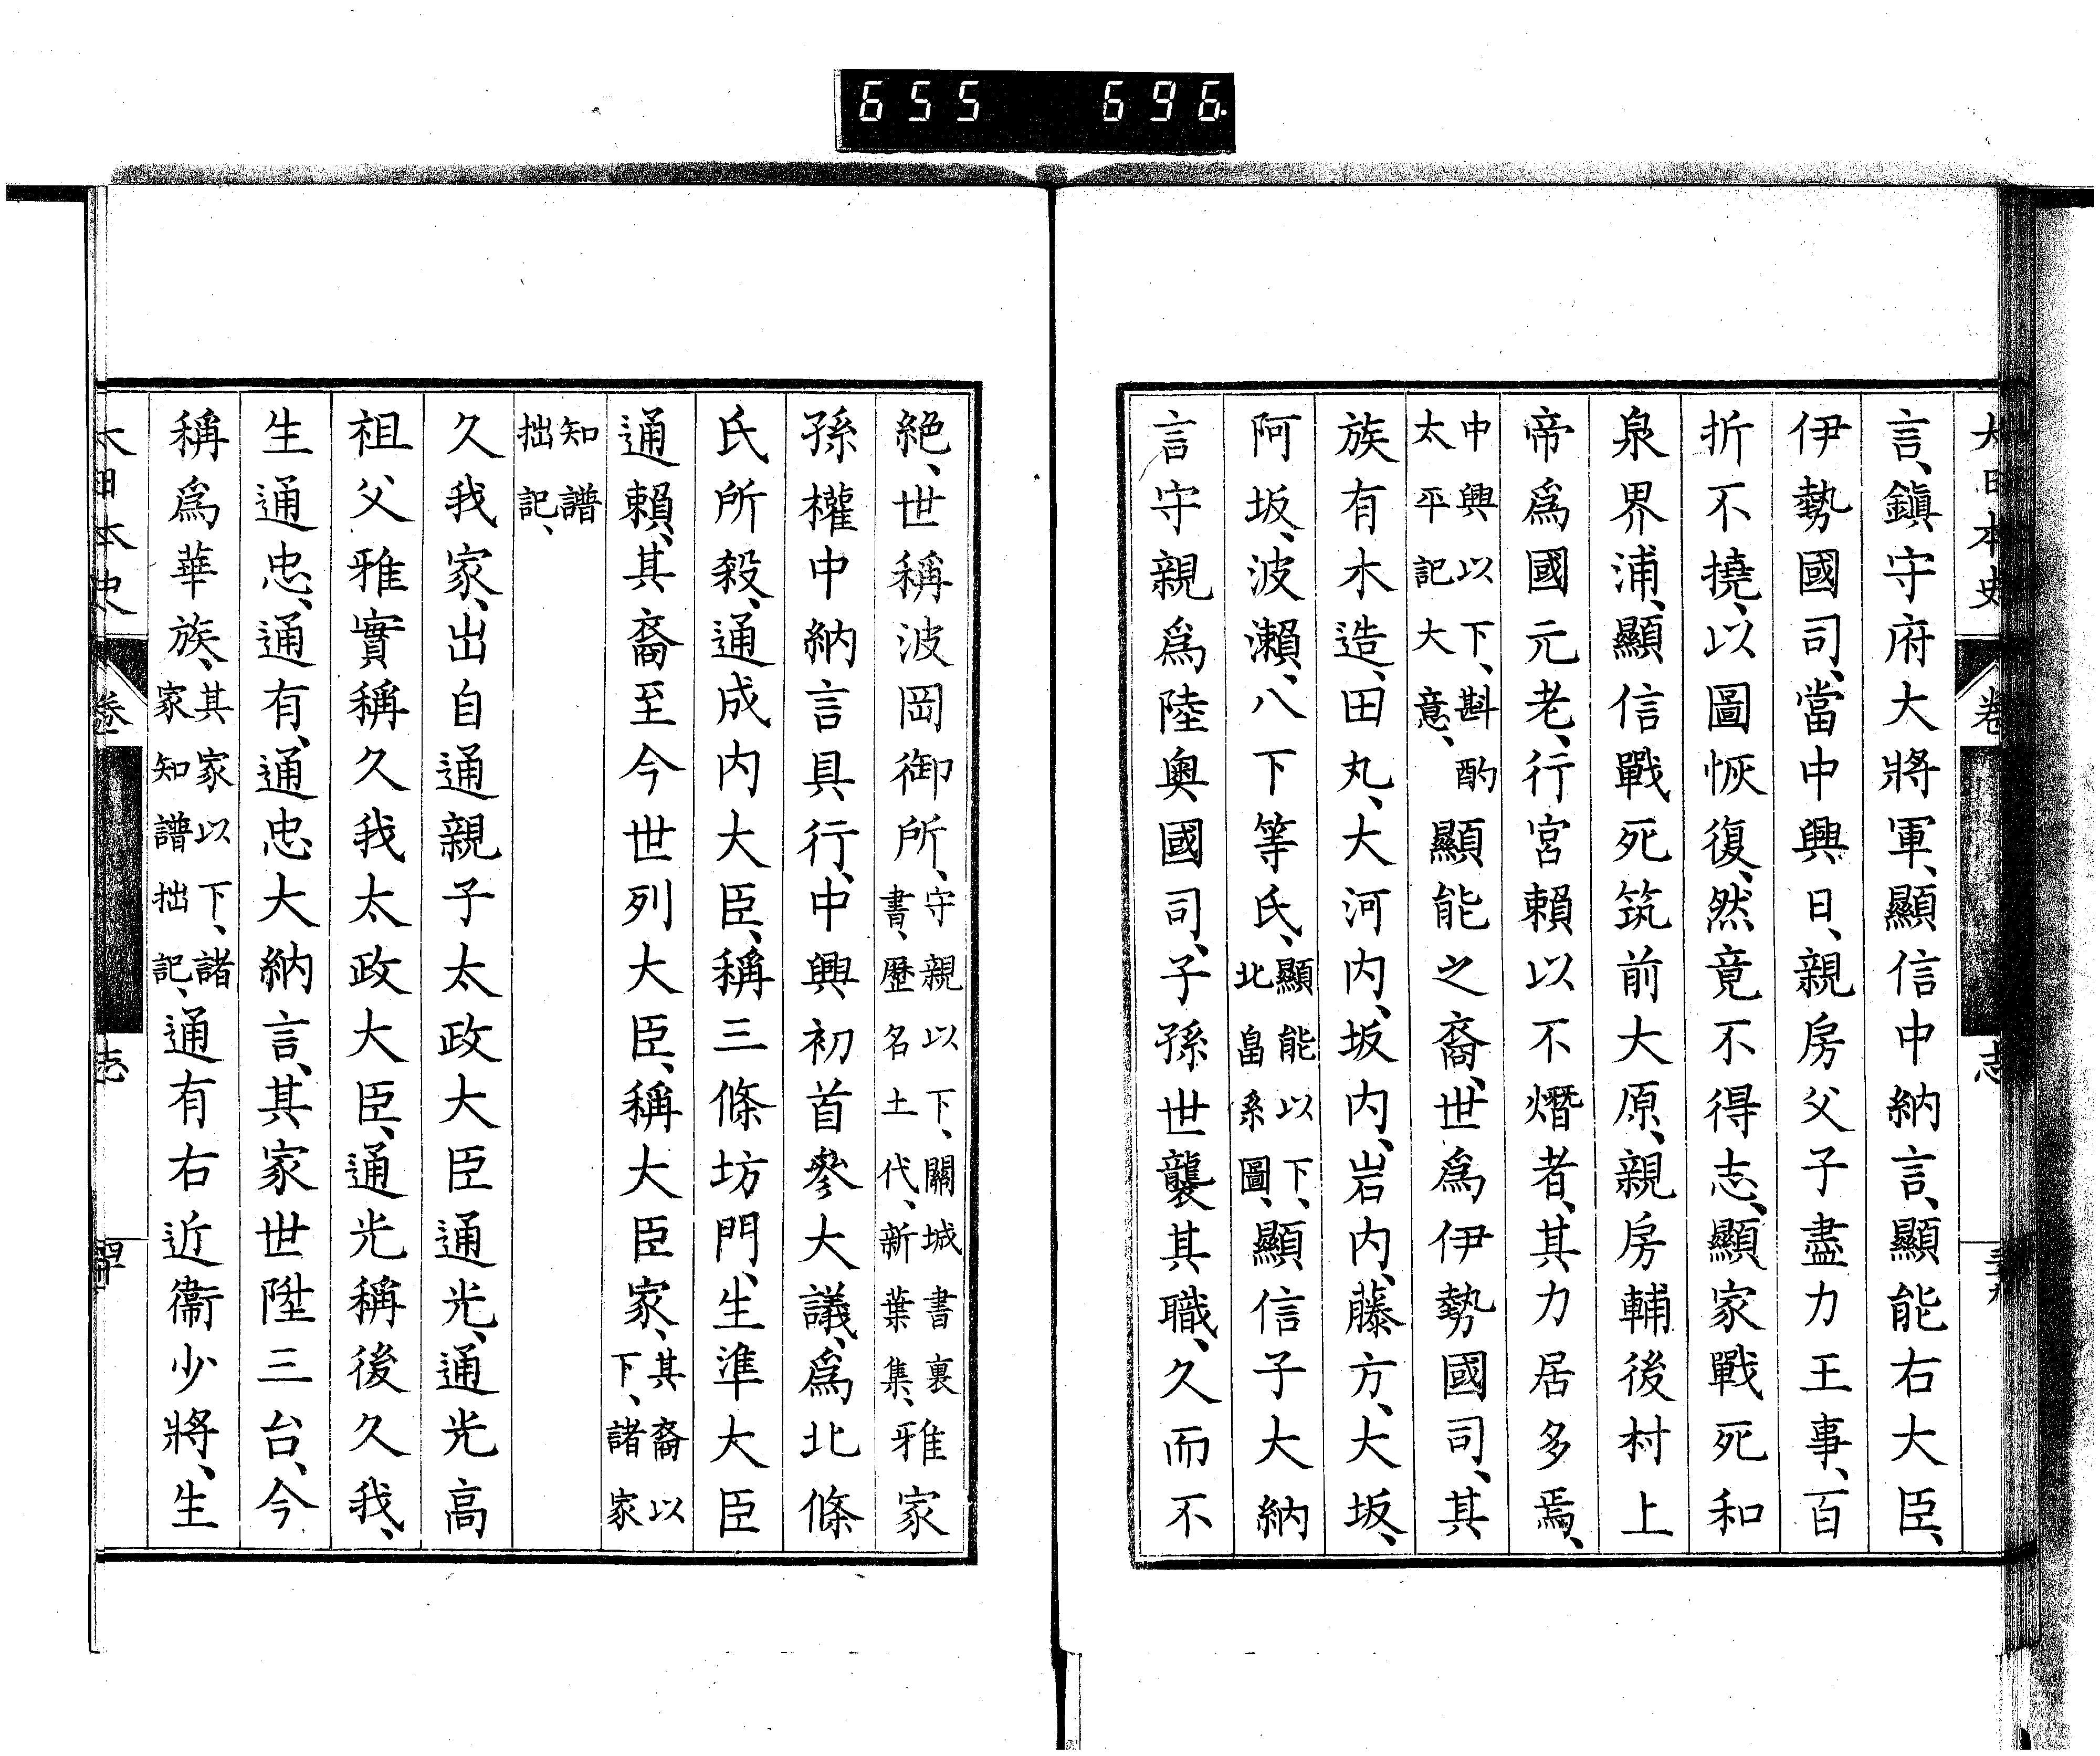 655 696
言、鎭守府大將軍、顯信中納言、顯能右大臣、
伊勢國司、當中興日、親房父子盡力王事、百
折不撓、以圖恢復、然竟不得志、顯家戰死和
泉界浦、顯信戰死筑前大原、親房輔後村上
帝爲國元老、行宮賴以不熸者、其力居多焉、
中興以下、斟酌太平記大意、顯能之裔、世爲伊勢國司、其
族有木造、田丸、大河內、坂內、岩內、藤方、大坂、
阿坂、波瀨、八下等氏、顯能以下、北畠系圖、顯信子大納
言守親爲陸奧國司、子孫世襲其職、久而不
絕、世稱波岡御所、守親以下、關城書裏書、歷名土代、新葉集、雅家
孫權中納言具行、中興初首參大議、爲北條
氏所殺、通成內大臣、稱三條坊門、生準大臣
通賴、其裔至今世列大臣、稱大臣家、其裔以下、諸家
知譜拙記、
久我家、出自通親子太政大臣通光、通光高
祖父雅實稱久我太政大臣、通光稱後久我、
生通忠、通有、通忠大納言、其家世陞三台、今
稱爲華族、其家以下、諸家知譜拙記、通有右近衞少將、生
大日本史 卷 志